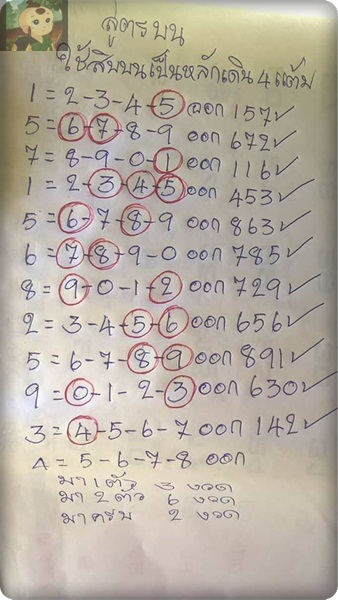 สูตรบน
ใช้สิบบนเป็นหลักเดิน 4 แต้ม
1 = 2-3-4-5 ออก 157✓
5 = 6-7-8-9 ออก 672✓
7 = 8-9-0-1 ออก 116✓
1 = 2-3-4-5 ออก 453✓
5 = 6-7-8-9 ออก 863✓
6 = 7-8-9-0 ออก 785✓
8 = 9-0-1-2 ออก 729✓
2 = 3-4-5-6 ออก 656✓
5 = 6-7-8-9 ออก 891✓
9 = 0-1-2-3 ออก 630✓
3 = 4-5-6-7 ออก 142✓
4 = 5-6-7-8 ออก
มา 1 ตัว 3 งวด
มา 2 ตัว 6 งวด
มาครบ 2 งวด